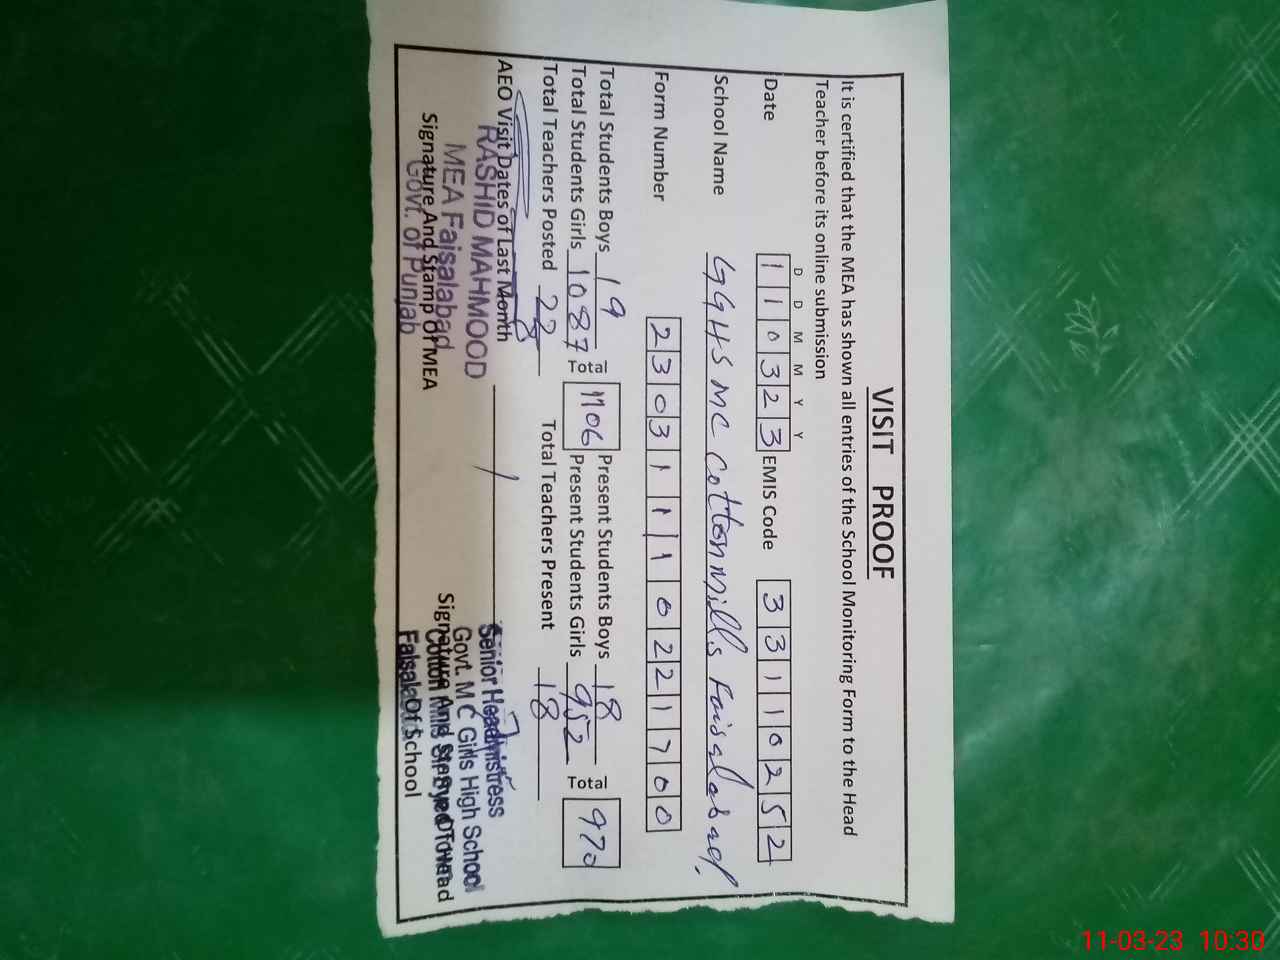 VISIT PROOF
It is certified that the MEA has shown all entries of the School Monitoring Form to the Head
Teacher before its online submission
D D M M Y Y
Date 110323 EMIS Code 33110252
School Name GGHS MC Cotton Mills Faisalabad
Form Number 23031110221700
Total Students Boys 19 Present Students Boys 18
Total 1106 Total 970
Total Students Girls 1087 Present Students Girls 952
Total Teachers Posted 22 Total Teachers Present 18
AEO Visit Dates of Last Month
RASHID MAHMOOD
MEA Faisalabad
Govt. of Punjab
Signature And Stamp Of MEA
Senior Headmistress
Govt. M C Girls High School
Signature And Stamp Of Head
Of School
11-03-23 10:30